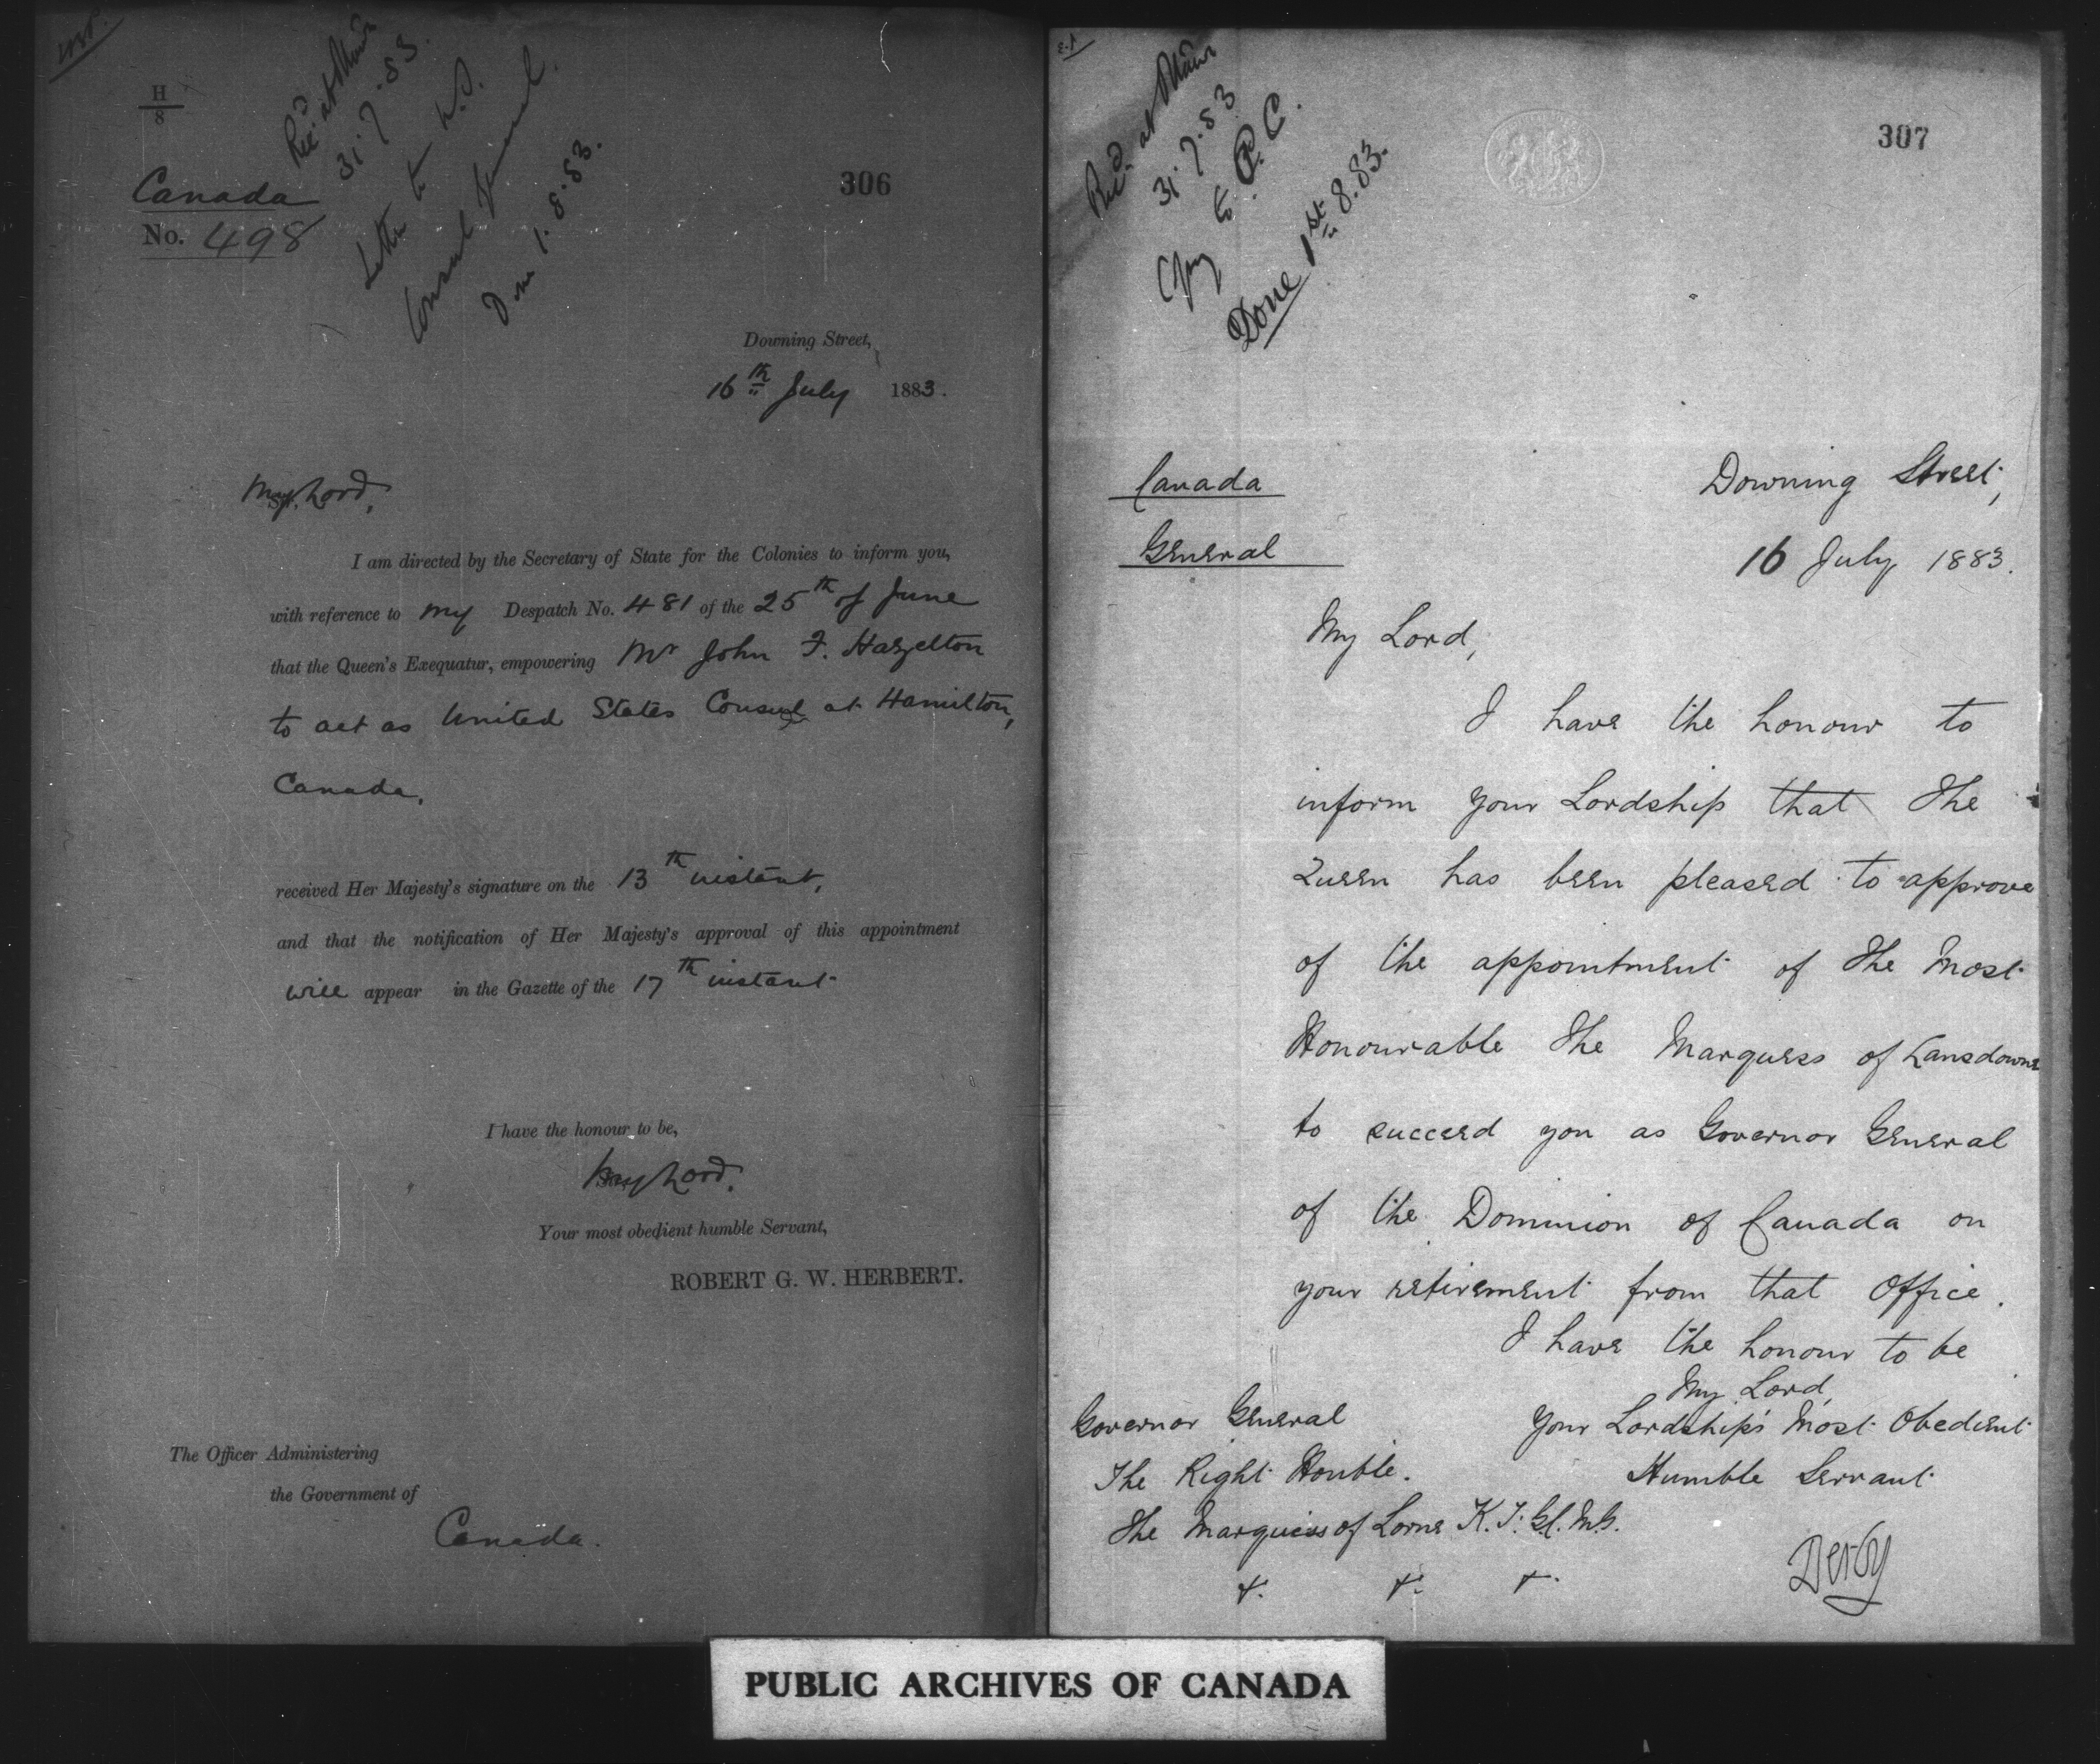 H
8
Canada
No. 498
Recd. at Ottawa
31.7.83.
Letter to
Consul General.
Done 1.8.83.
306
Downing Street,
16th July 1883.
My Lord,
I am directed by the Secretary of State for the Colonies to inform you,
with reference to my Despatch No. 481 of the 25th of June
that the Queen's Exequatur, empowering Mr John F. Hazelton
to act as United States Consul at Hamilton,
Canada,
received Her Majesty's signature on the 13th instant,
and that the notification of Her Majesty's approval of this appointment
will appear in the Gazette of the 17th instant
I have the honour to be,
My Lord,
Your most obedient humble Servant,
ROBERT G. W. HERBERT.
The Officer Administering
the Government of
Canada.
Recd. at Ottawa
31.7.83
Copy to P.C.
Done 1st 8.83.
307
Canada
General
Downing Street,
16 July 1883.
My Lord,
I have the honour to
inform your Lordship that The
Queen has been pleased to approve
of the appointment of The Most
Honourable The Marquess of Lansdowne
to succeed you as Governor General
of the Dominion of Canada on
your retirement from that Office.
I have the honour to be
My Lord,
Your Lordship's Most Obedient
Humble Servant
Derby
Governor General
The Right Honble.
The Marquess of Lorne K.T. G.C.M.G.
&c. &c. &c.
PUBLIC ARCHIVES OF CANADA